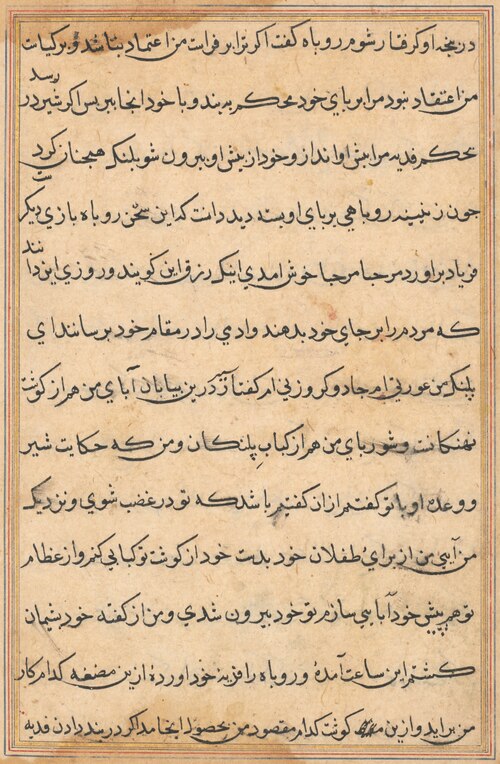 در پنجه او گرفتار شوم روباه گفت اگر ترا بر فراست من اعتماد نباشد و بر کیاست
من اعتقاد نبود مرا بر پای خود محکم به بند و با خود انجا ببر پس اگر شیر در رسد
تحکم فدیه مرا پیش او انداز و خود از پیش او بیرون شو پلنک همچنان کرد
چون زنینه روباهی بر پای او بسته دید دانست که این سخن روباه بازی دیگر است
فریاد براورد مرحبا مرحبا خوش امدی اینک رزق این کویند و روزی این دانند
که مردم را بر جای خود بدهند وادمی را در مقام خود برسانند ای
پلنک من عورتی ام جادو کر و زنی ام کفتار درین بیابان آبای من هم از کوشت
نهنکانست و شوربای من هم از کباب پلنکان و من که حکایت شیر
و وعده او با تو کفتم از ان کفتیم باشد که تو در غضب شوی و نزدیک
من آیی من از برای طفلان خود بدست خود از کوشت تو کبابی کنم و از عظام
تو هم پیش خود آبایی سازم تو خود بیرون شدی و من از کفته خود پشیمان
کشتم این ساعت آمدهٔ و روباه را فربه خود اوردهٔ ازین مضغه کدام کار
من براید و ازین کوشت کدام مقصود من بحصول انجامد اکر در بند دادن فدیه